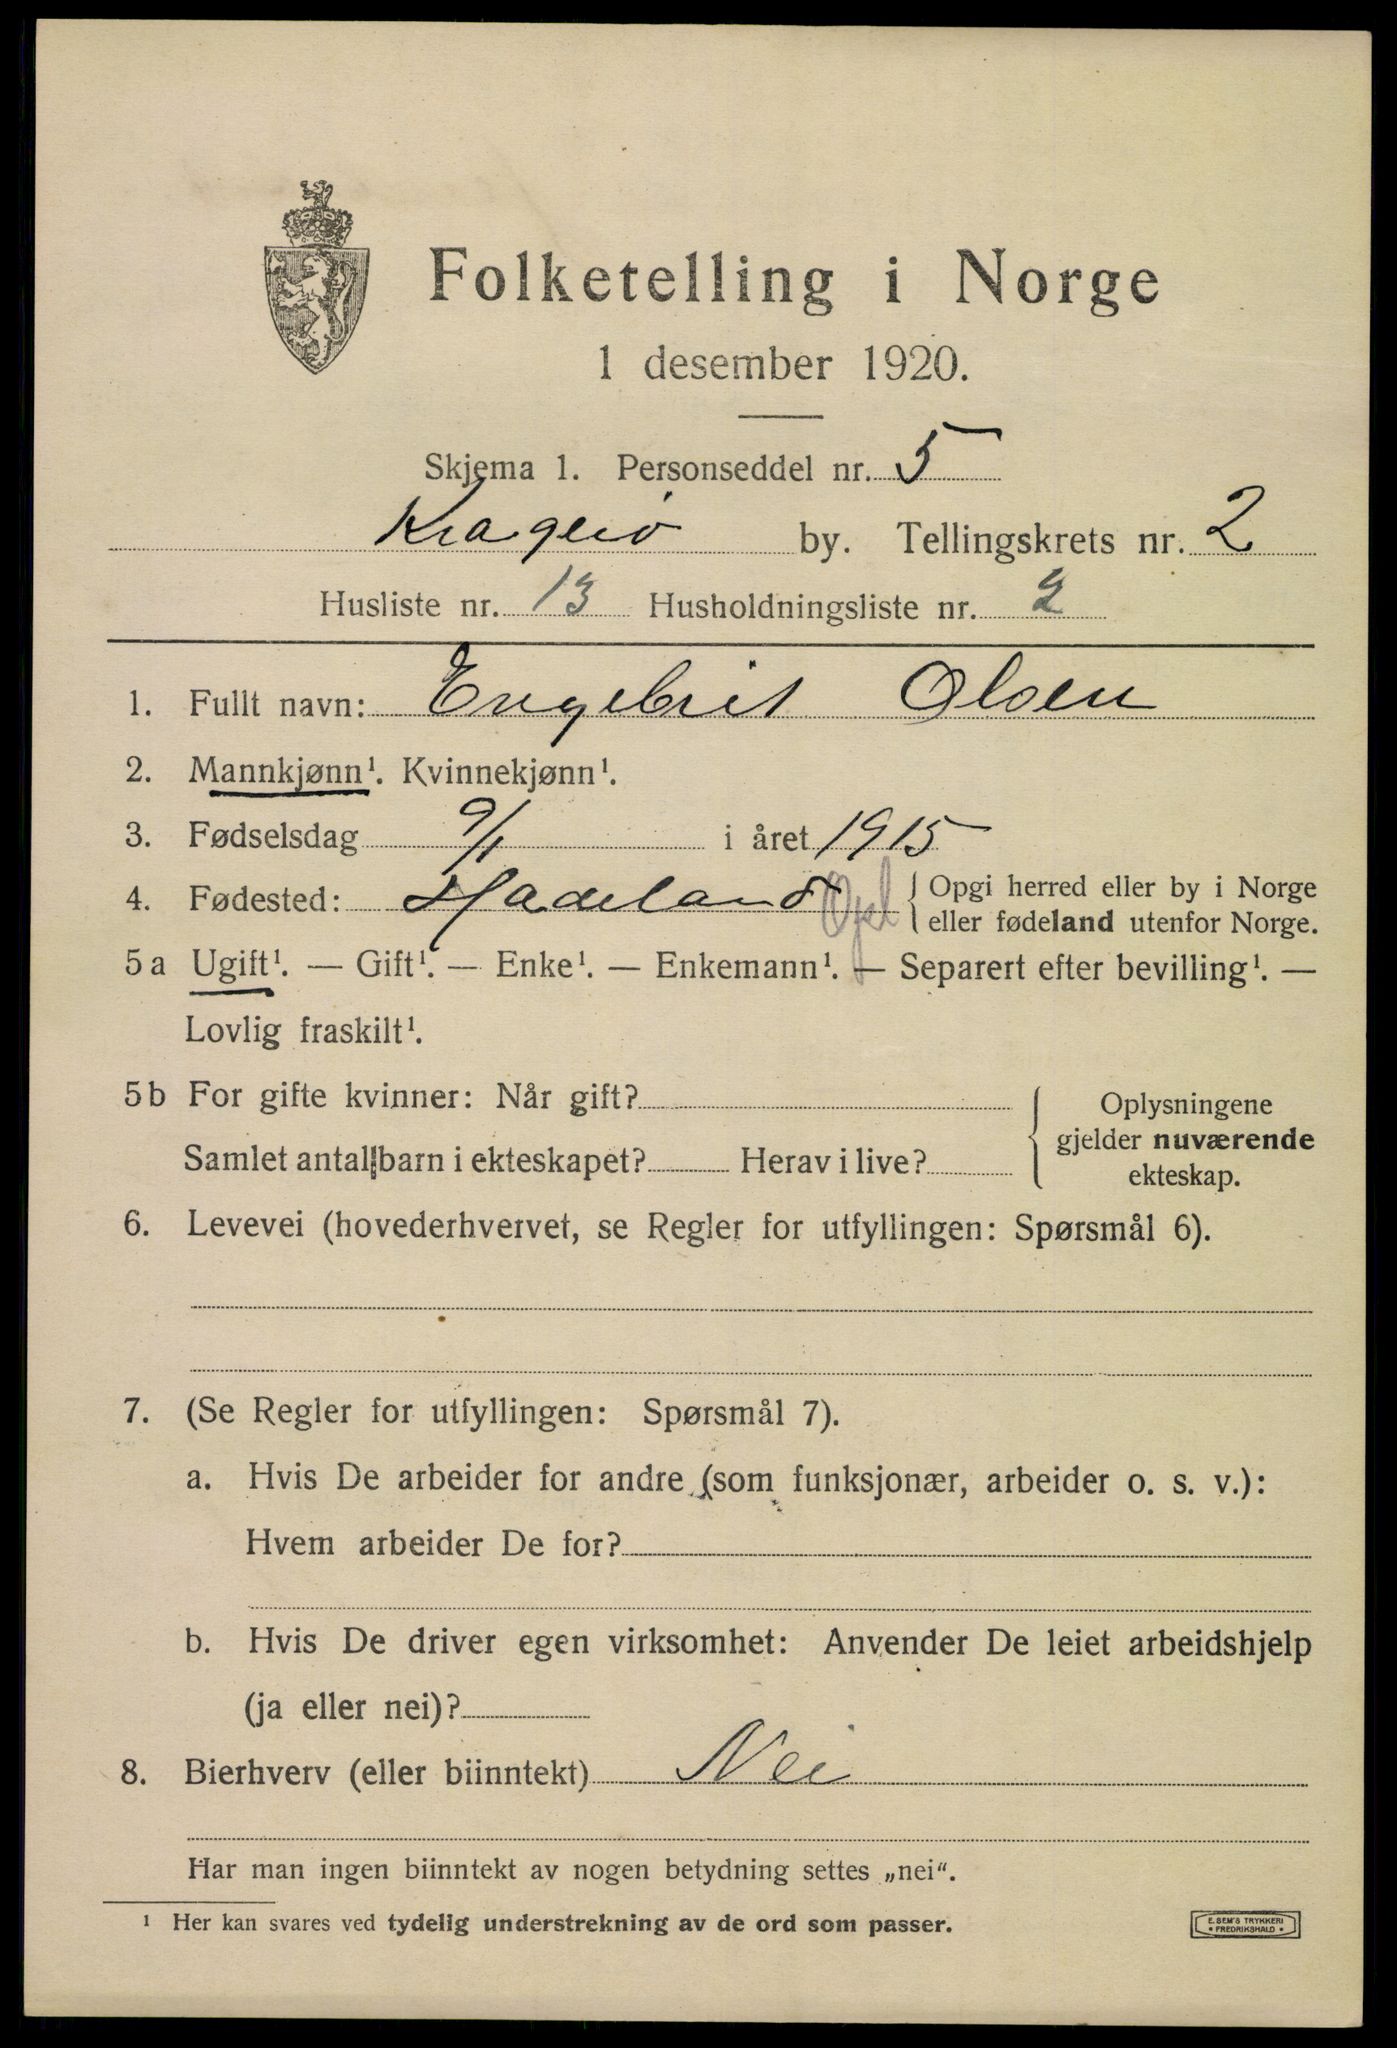 Folketelling i Norge
1 desember 1920.
Skjema 1. Personseddel nr. 5
Kragerø by. Tellingskrets nr. 2
Husliste nr. 13 Husholdningsliste nr. 2
1. Fullt navn: Engebrit Olsen
2. Mannkjønn¹. Kvinnekjønn¹.
3. Fødselsdag 9/1 i året 1915
4. Fødested: Hadeland Opl { Opgi herred eller by i Norge
eller fødeland utenfor Norge.
5 a Ugift¹. — Gift¹. — Enke¹. — Enkemann¹. — Separert efter bevilling¹. —
Lovlig fraskilt¹.
5 b For gifte kvinner: Når gift?
Samlet antall barn i ekteskapet? Herav i live?
{ Oplysningene
gjelder nuværende
ekteskap.
6. Levevei (hovederhvervet, se Regler for utfyllingen: Spørsmål 6).
7. (Se Regler for utfyllingen: Spørsmål 7).
a. Hvis De arbeider for andre (som funksjonær, arbeider o. s. v.):
Hvem arbeider De for?
b. Hvis De driver egen virksomhet: Anvender De leiet arbeidshjelp
(ja eller nei)?
8. Bierhverv (eller biinntekt) Nei
Har man ingen biinntekt av nogen betydning settes „nei“.
¹ Her kan svares ved tydelig understrekning av de ord som passer.
E. SEM'S TRYKKERI
• FREDRIKSHALD •